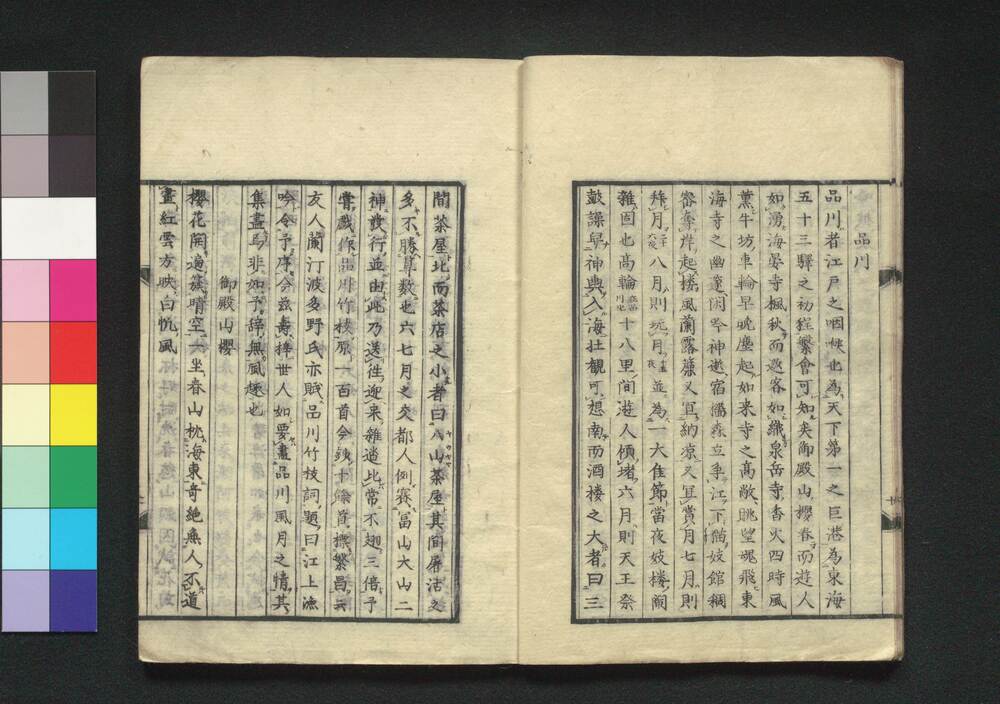 品川
品川者江戸之咽喉也為天下第一之巨港為東海
五十三驛之初程繁會可知矣御殿山櫻春而遊人
如湧海晏寺楓秋而遊客如織泉岳寺香火四時風
薫牛坊車輪早晩塵起如来寺之髙敞眺望魂飛東
海寺之幽邃閑吟神遊宿儒森立乎江下皆妓館稠
密奪岸起樓風蘭露簾又宜納凉又宜賞月七月則
拜月八月則玩月並為一大佳節當夜妓樓閙
雜固也髙輪十八里間遊人傾堵六月則天王祭
鼓譟舁神輿入海壮觀可想南而酒楼之大者曰三
間茶屋北而茶店之小者曰八山茶屋其間屠沽之
多不勝算数也六七月之交都人例賽冨山大山二
神發行並由此乃送往迎来雜遝比常不翅三倍予
嘗戯作品川竹枝原一百首今録十餘首
友人蘭汀波多野氏亦賦品川竹枝詞題曰江上漁
吟令予序今茲壽梓世人如要盡品川風月之情其
集盡焉非如予辞無風趣也
御殿山櫻
櫻花開遍簇晴空一坐春山枕海東奇絶無人不道
畫紅雲方映白帆風